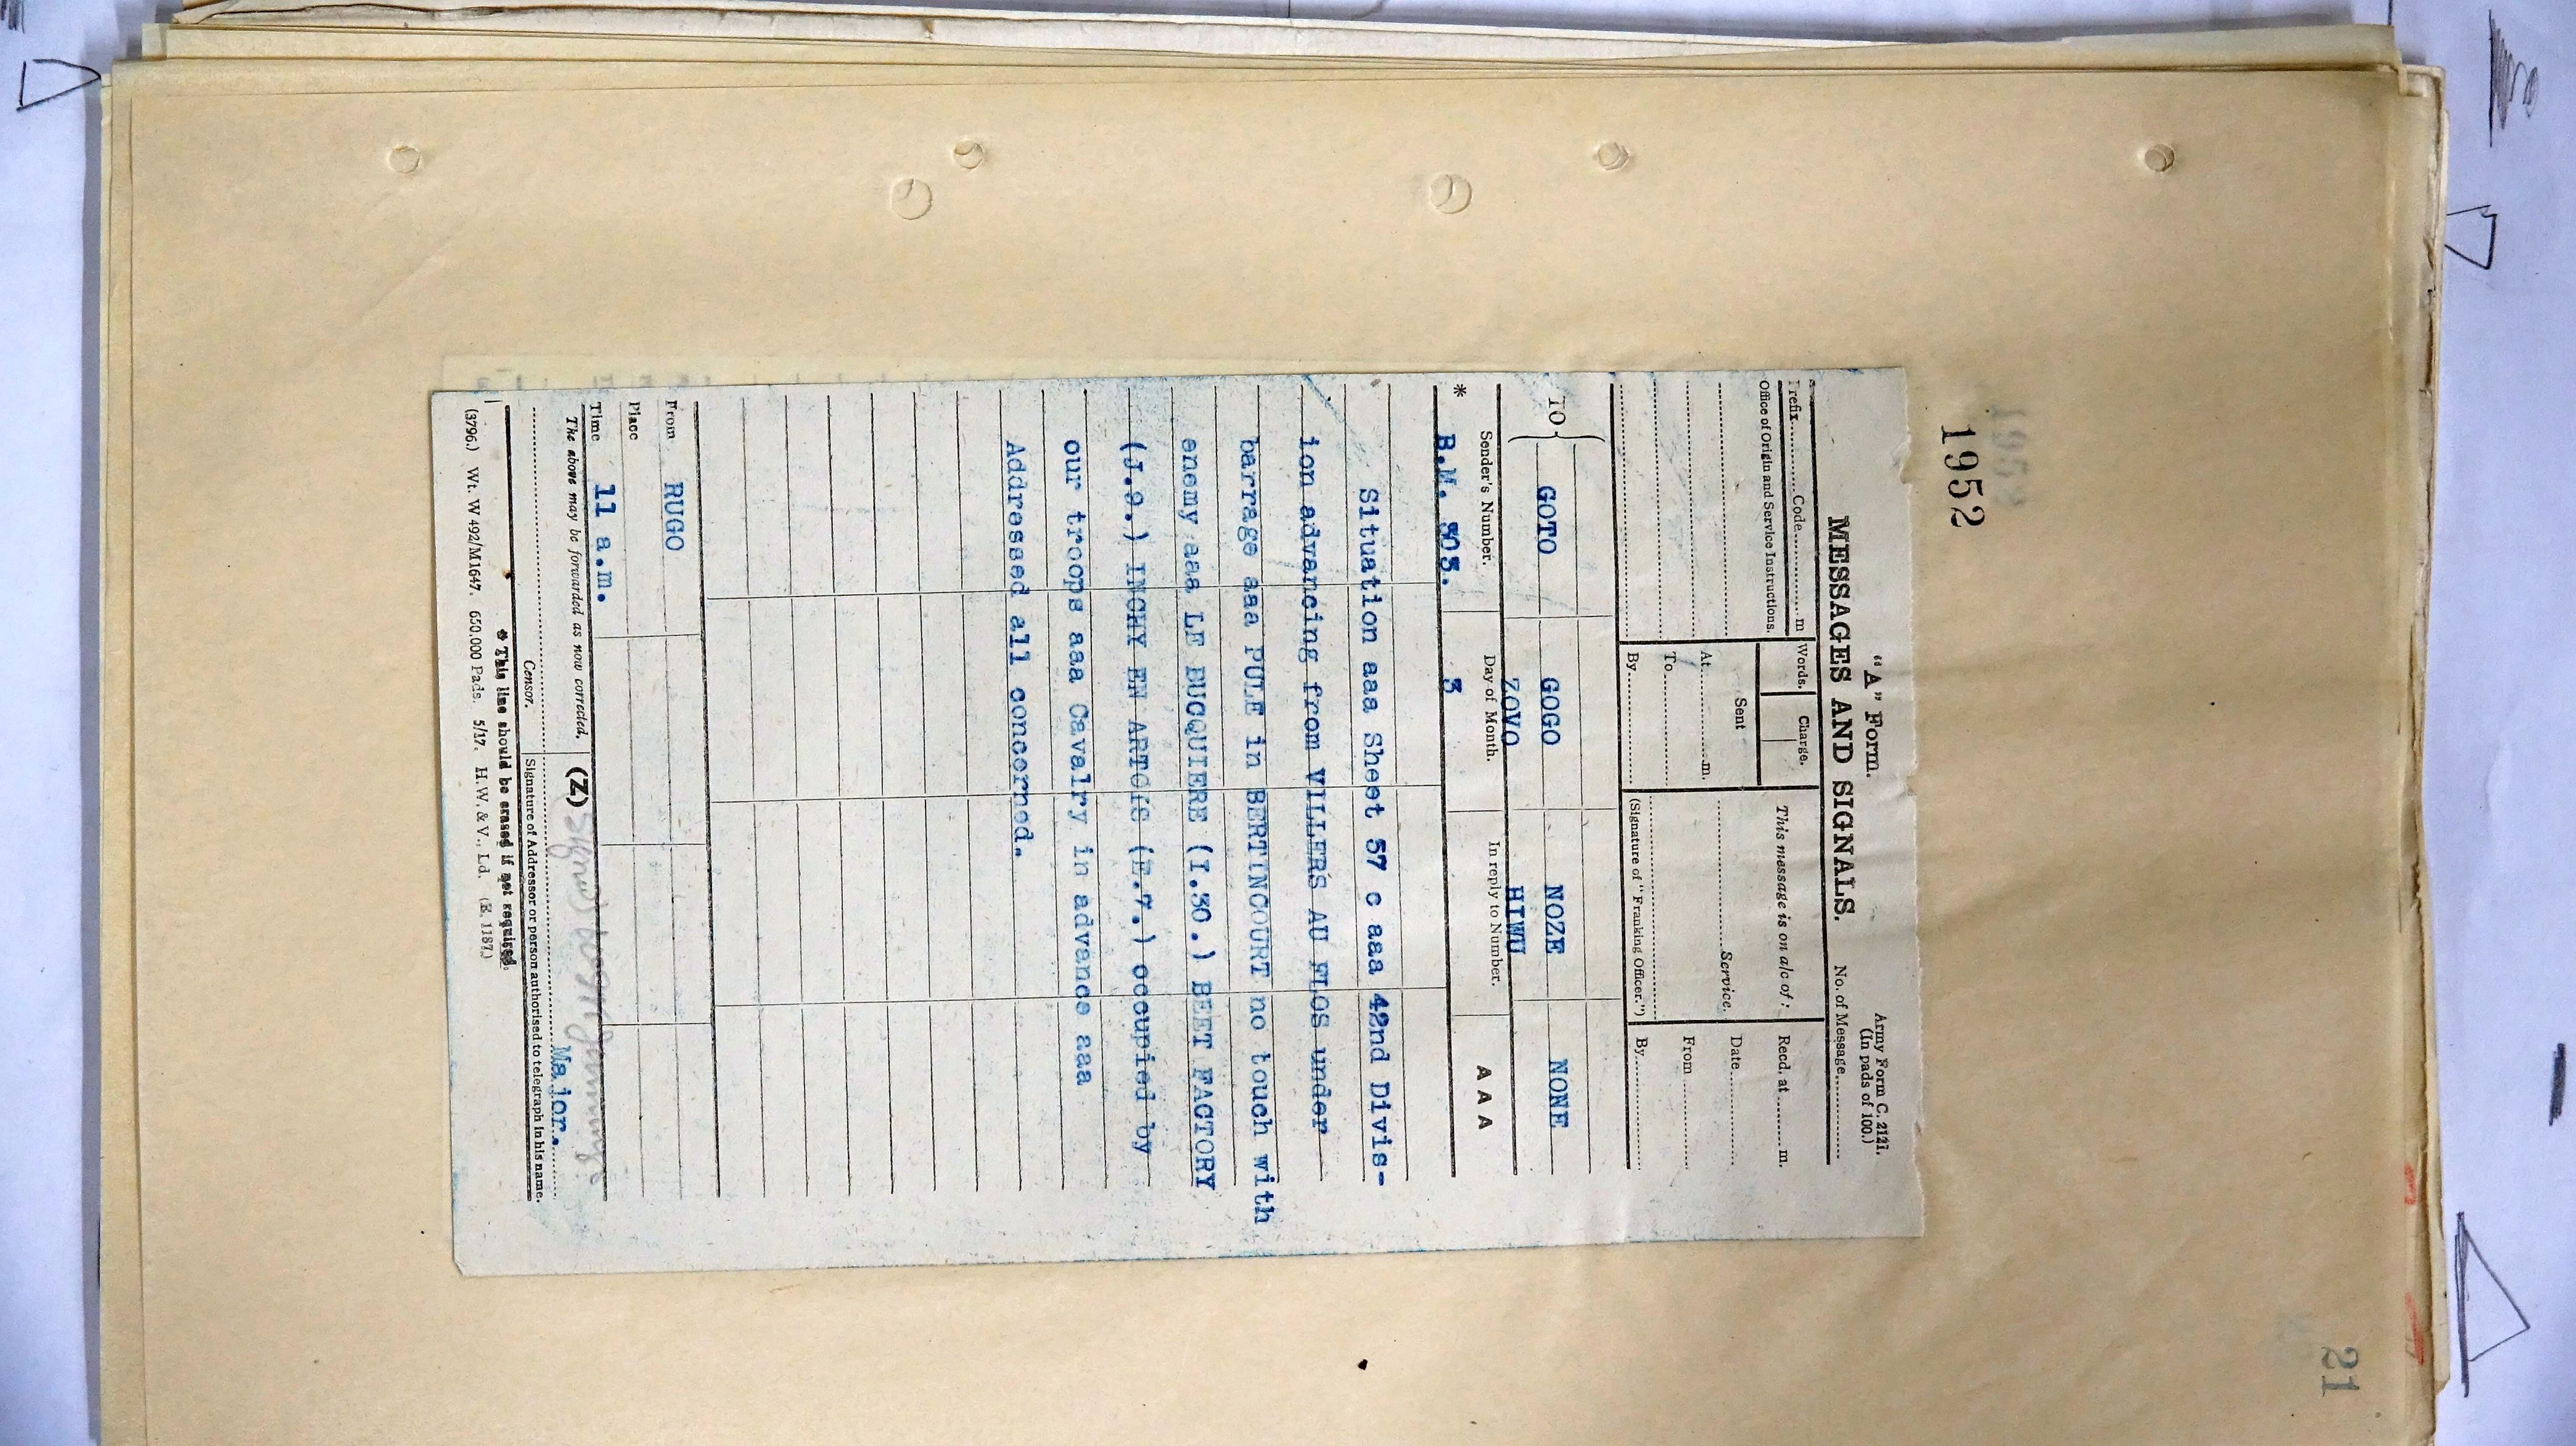 1952
21
"A" Form.
Army Form C. 2121.
(In pads of 100.)
MESSAGES AND SIGNALS.
No. of Message..........
Prefix..........Code..........m
Words.
Charge.
This message is on a/c of :
Recd. at..........m.
Office of Origin and Service Instructions.
Sent
..........Service.
Date..........
At..........m.
From..........
To..........
By..........
(Signature of "Franking Officer.")
By..........
TO
GOTO GOGO NOZE NONE
ZOVO HIWU
Sender's Number. Day of Month. In reply to Number. A A A
* B.M. 503. 3
Situation aaa Sheet 57 c aaa 42nd Divis-
ion advancing from VILLERS AU FLOS under
barrage aaa PULE in BERTINCOURT no touch with
enemy aaa LE BUCQUIERE (I.30.) BEET FACTORY
(J.9.) INCHY EN ARTOIS (E.7.) occupied by
our troops aaa Cavalry in advance aaa
Addressed all concerned.
From RUGO
Place
Time 11 a.m.
The above may be forwarded as now corrected. (Z)
Major.
Censor. Signature of Addressor or person authorised to telegraph in his name.
* This line should be erased if not required.
(3796.) Wt. W 492/M1647. 650,000 Pads. 5/17. H.W. & V., Ld. (E. 1187.)